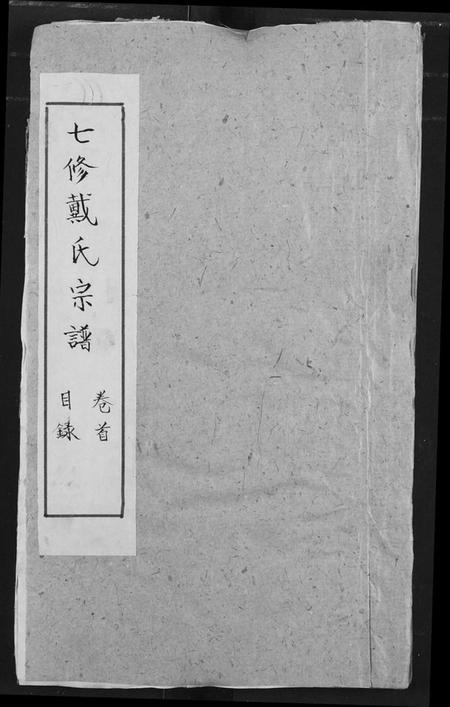 七修戴氏宗譜
卷首
目録